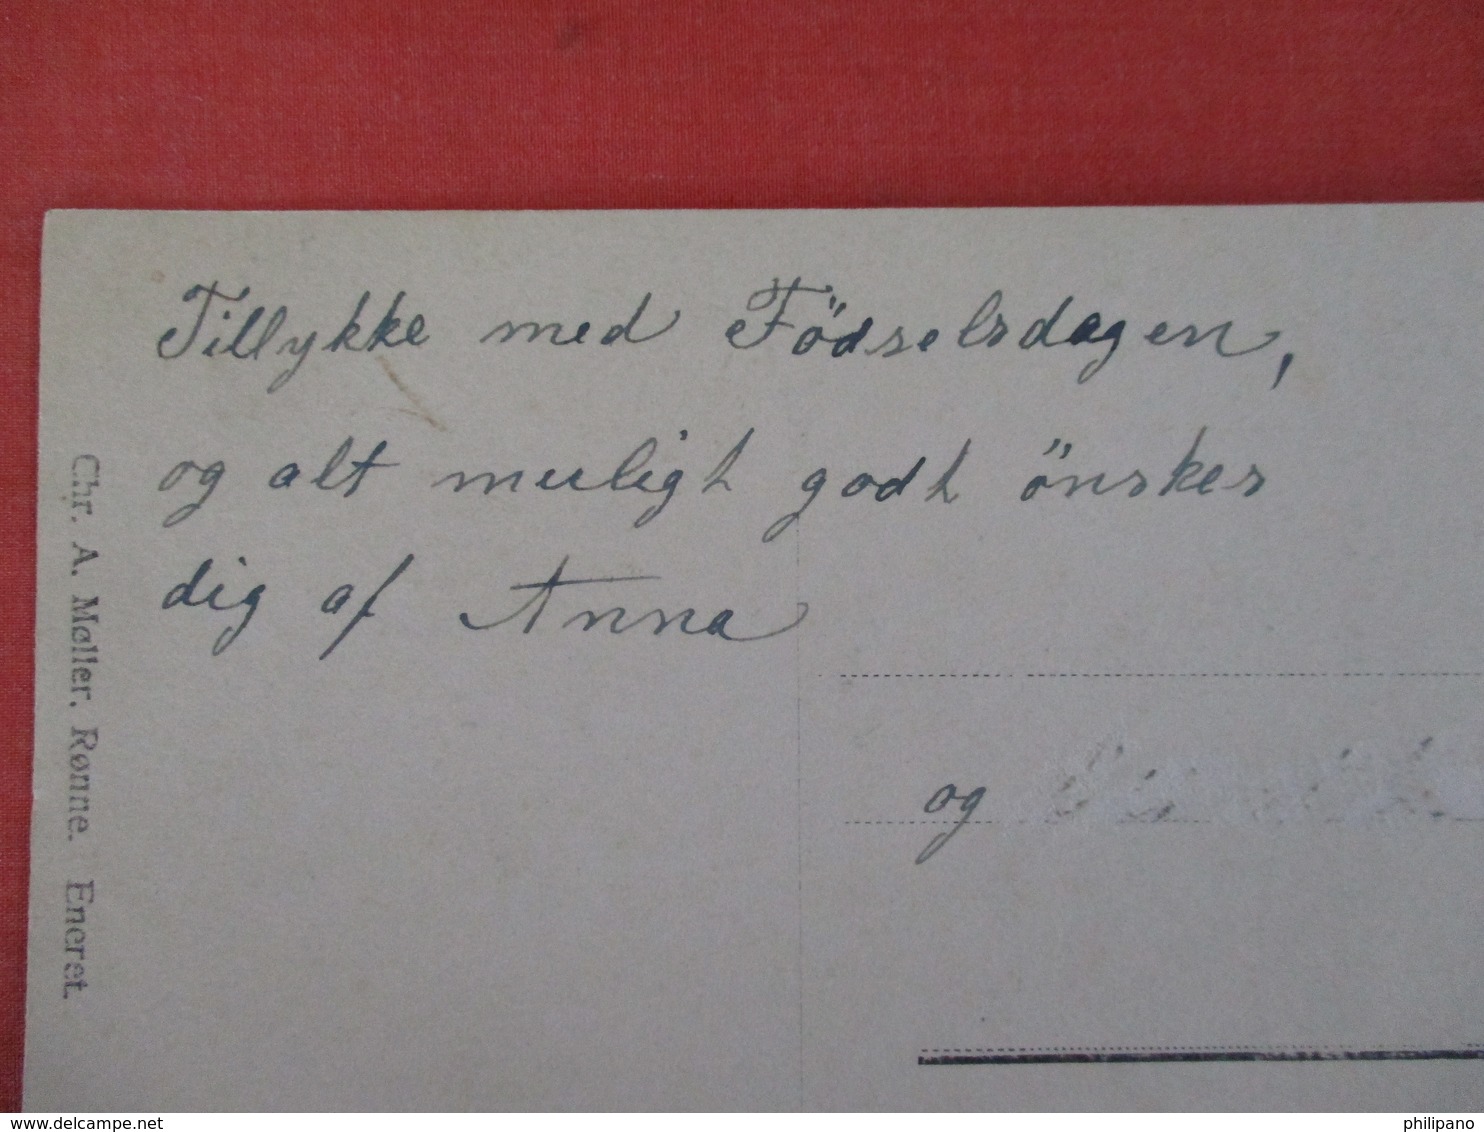 Tillykke med Födselsdagen,
og alt muligt godt önskes
dig af Anna
og
Chr. A. Møller. Rønne. Eneret.
philipano